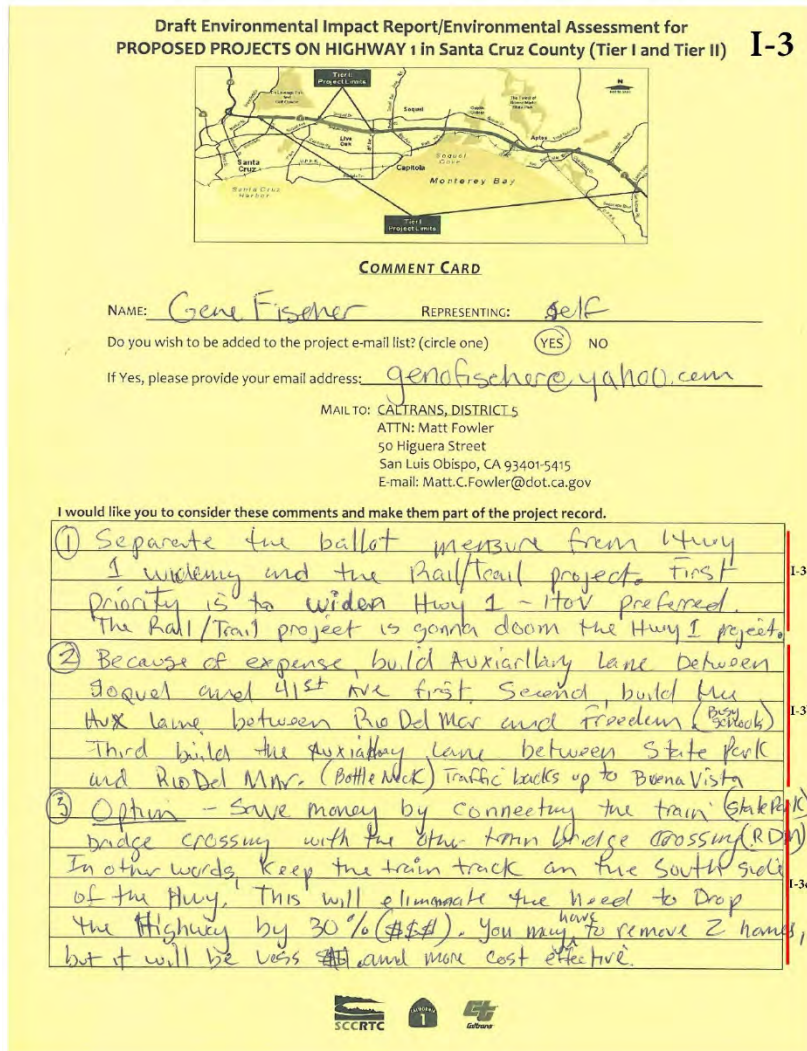 Draft Environmental Impact Report/Environmental Assessment for
PROPOSED PROJECTS ON HIGHWAY 1 in Santa Cruz County (Tier I and Tier II)
I-3
Tier II
Project Limits
Soquel
Live Oak
Aptos
Santa Cruz
Capitola
Soquel Cove
Monterey Bay
Santa Cruz Harbor
Tier I
Project Limits
COMMENT CARD
NAME: Gene Fischer REPRESENTING: self
Do you wish to be added to the project e-mail list? (circle one) YES NO
If Yes, please provide your email address: genofischer@yahoo.com
MAIL TO: CALTRANS, DISTRICT 5
ATTN: Matt Fowler
50 Higuera Street
San Luis Obispo, CA 93401-5415
E-mail: Matt.C.Fowler@dot.ca.gov
I would like you to consider these comments and make them part of the project record.
① Separate the ballot measure from Hwy
1 widening and the Rail/Trail project. First
priority is to widen Hwy 1 - HOV preferred.
The Rail/Trail project is gonna doom the Hwy 1 project.
I-3
② Because of expense, build Auxiarllary Lane between
Soquel and 41st Ave first. Second, build the
Aux lane between Rio Del Mar and Freedom (Busy Schools)
Third build the Auxiallary Lane between State Park
and Rio Del Mar. (Bottle Neck) Traffic backs up to Buena Vista
I-3
③ Option - Save money by connecting the train (State Park)
bridge crossing with the other train bridge crossing (RDM)
In other words, keep the train track on the South side
of the Hwy. This will eliminate the need to Drop
the Highway by 30% ($$$). You may have to remove 2 homes,
but it will be less and more cost effective.
I-3
SCCRTC
CALIFORNIA
1
Caltrans